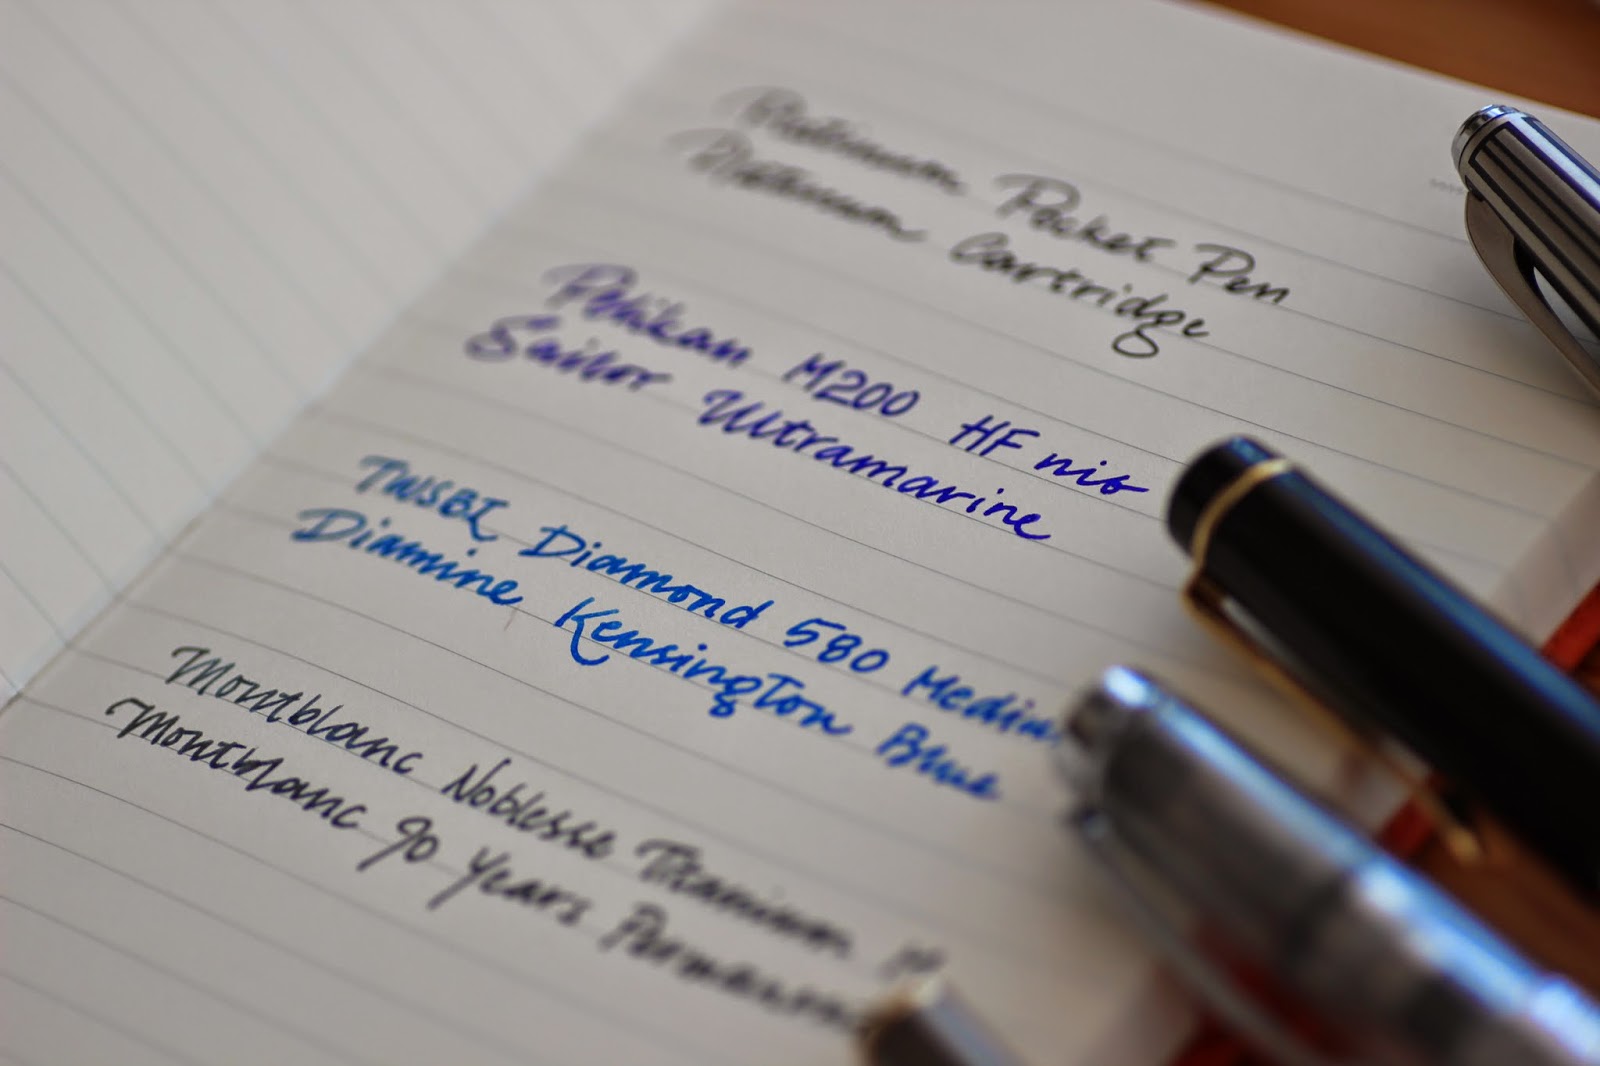 Platinum Pocket Pen
Platinum Cartridge
Pelikan M200 HF nib
Sailor Ultramarine
TWSBI Diamond 580 Mediu
Diamine Kensington Blue
Montblanc Noblesse Titanium
Montblanc 90 Years Permanent